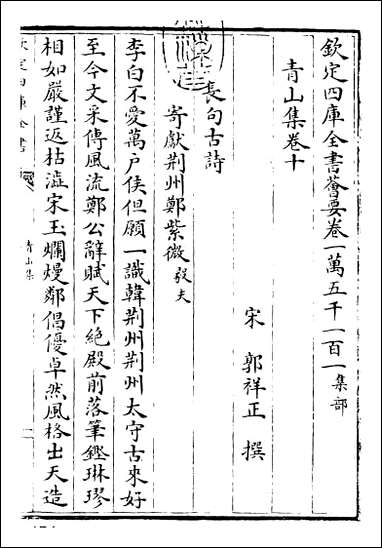 欽定四庫全書薈要卷一萬五千一百一集部
青山集卷十
宋 郭祥正 撰
長句古詩
寄獻荆州鄭紫微毅夫
李白不愛萬户侯但願一識韓荆州荆州太守古來好
至今文采傳風流鄭公辭賦天下絶殿前落筆鏗琳璆
相如嚴謹返枯澁宋玉爛熳鄰倡優卓然風格出天造
欽定四庫全書
青山集
一